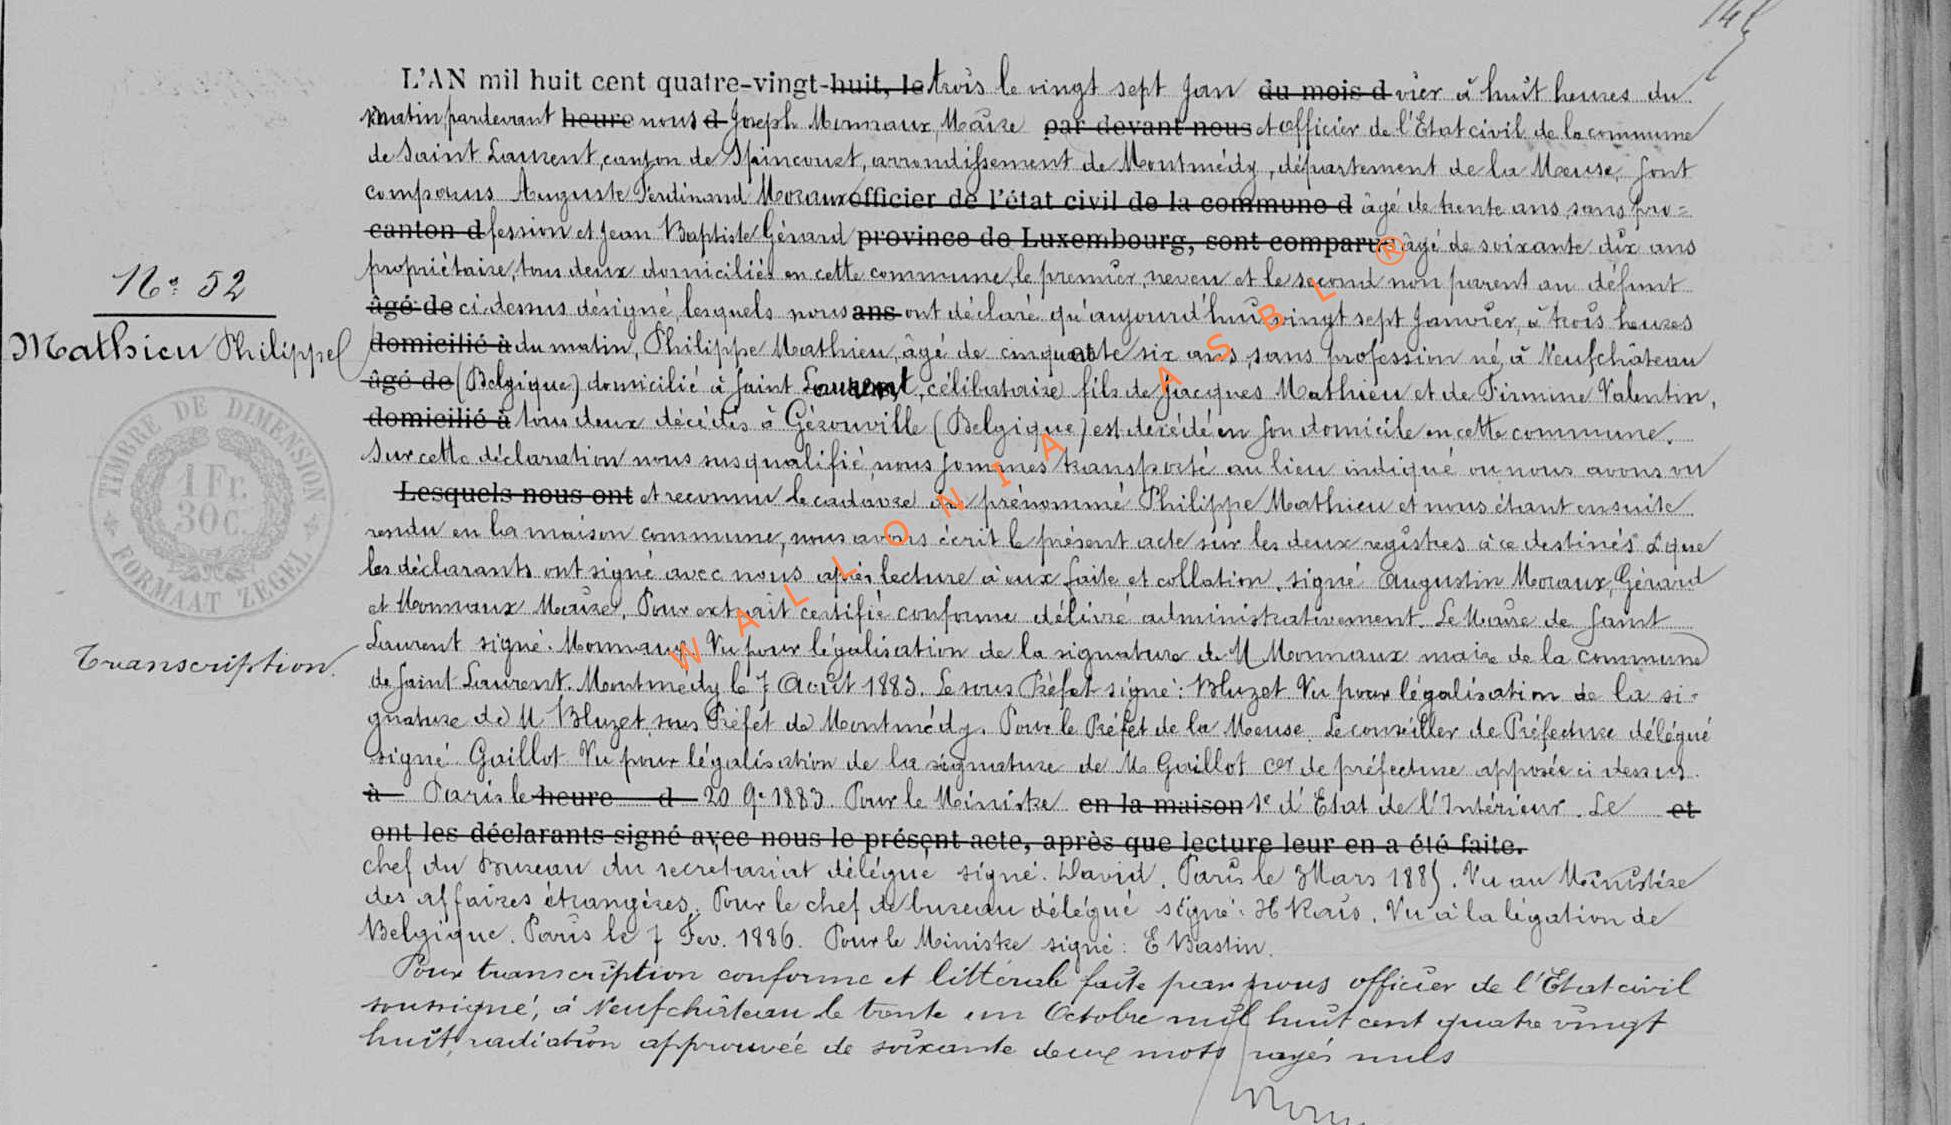 L'AN mil huit cent quatre-vingt-huit, le trois le vingt sept Jan du mois d vier à huit heures du
matin, pardevant heure nous d Joseph Monnaux, Maire par devant nous et officier de l'Etat civil de la commune
de Saint Laurent, canton de Spincourt, arrondissement de Montmédy, département de la Meuse, sont
comparus Auguste Ferdinand Moraux officier de l'état civil de la commune d âgé de trente ans, sans pro=
canton d fession et Jean Baptiste Gérard province de Luxembourg, sont comparus âgé de soixante dix ans
propriétaire, tous deux domiciliés en cette commune, le premier, neveu et le second non parent au défunt
âgé de ci-dessus désigné, lesquels nous ans ont déclaré qu'aujourd'hui vingt sept Janvier, à trois heures
N° 52
Mathieu Philippe
domicilié à du matin, Philippe Mathieu, âgé de cinquante six ans, sans profession né à Neufchâteau
âgé de (Belgique) domicilié à Saint Laurent, célibataire fils de Jacques Mathieu et de Firmine Valentin,
domicilié à tous deux décédés à Gérouville (Belgique) est décédé en son domicile en cette commune.
Sur cette déclaration nous susqualifié, nous sommes transporté au lieu indiqué ou nous avons vu
Lesquels nous ont et reconnu le cadavre du prénommé Philippe Mathieu et nous étant ensuite
rendu en la maison commune, nous avons écrit le présent acte sur les deux registres à ce destinés & que
les déclarants ont signé avec nous après lecture à eux faite et collation. signé Augustin Moraux, Gérard
et Monnaux Maire. Pour extrait certifié conforme délivré administrativement. Le Maire de Saint
Laurent signé. Monnaux Vu pour légalisation de la signature de M Monnaux maire de la commune
de Saint Laurent. Montmédy le 7 Août 1883. Le sous Préfet signé: Bluzet Vu pour légalisation de la si-
gnature de M Bluzet, sous Préfet de Montmédy. Pour le Préfet de la Meuse. Le conseiller de Préfecture délégué
signé Gaillot Vu pour légalisation de la signature de M Gaillot cer de préfecture apposée ci dessus.
à Paris le heure d 20 9e 1883. Pour le Ministre en la maison Se d'Etat de l'Intérieur. Le et
ont les déclarants signé avec nous le présent acte, après que lecture leur en a été faite.
chef du Bureau du secretariat délégué signé. David. Paris le 3 Mars 1885. Vu au Ministère
des affaires étrangères. Pour le chef de bureau délégué signé: H Rais. Vu à la légation de
Belgique. Paris le 7 Fev. 1886. Pour le Ministre signé: E Bastin.
Pour transcription conforme et littérale faite par nous officier de l'Etat civil
soussigné, à Neufchâteau le trente un Octobre mil huit cent quatre vingt
huit, radiation approuvée de soixante deux mots rayés nuls
TIMBRE DE DIMENSION
1 Fr.
30 C.
FORMAAT ZEGEL
Transcription.
WALLONIA ASBL ®